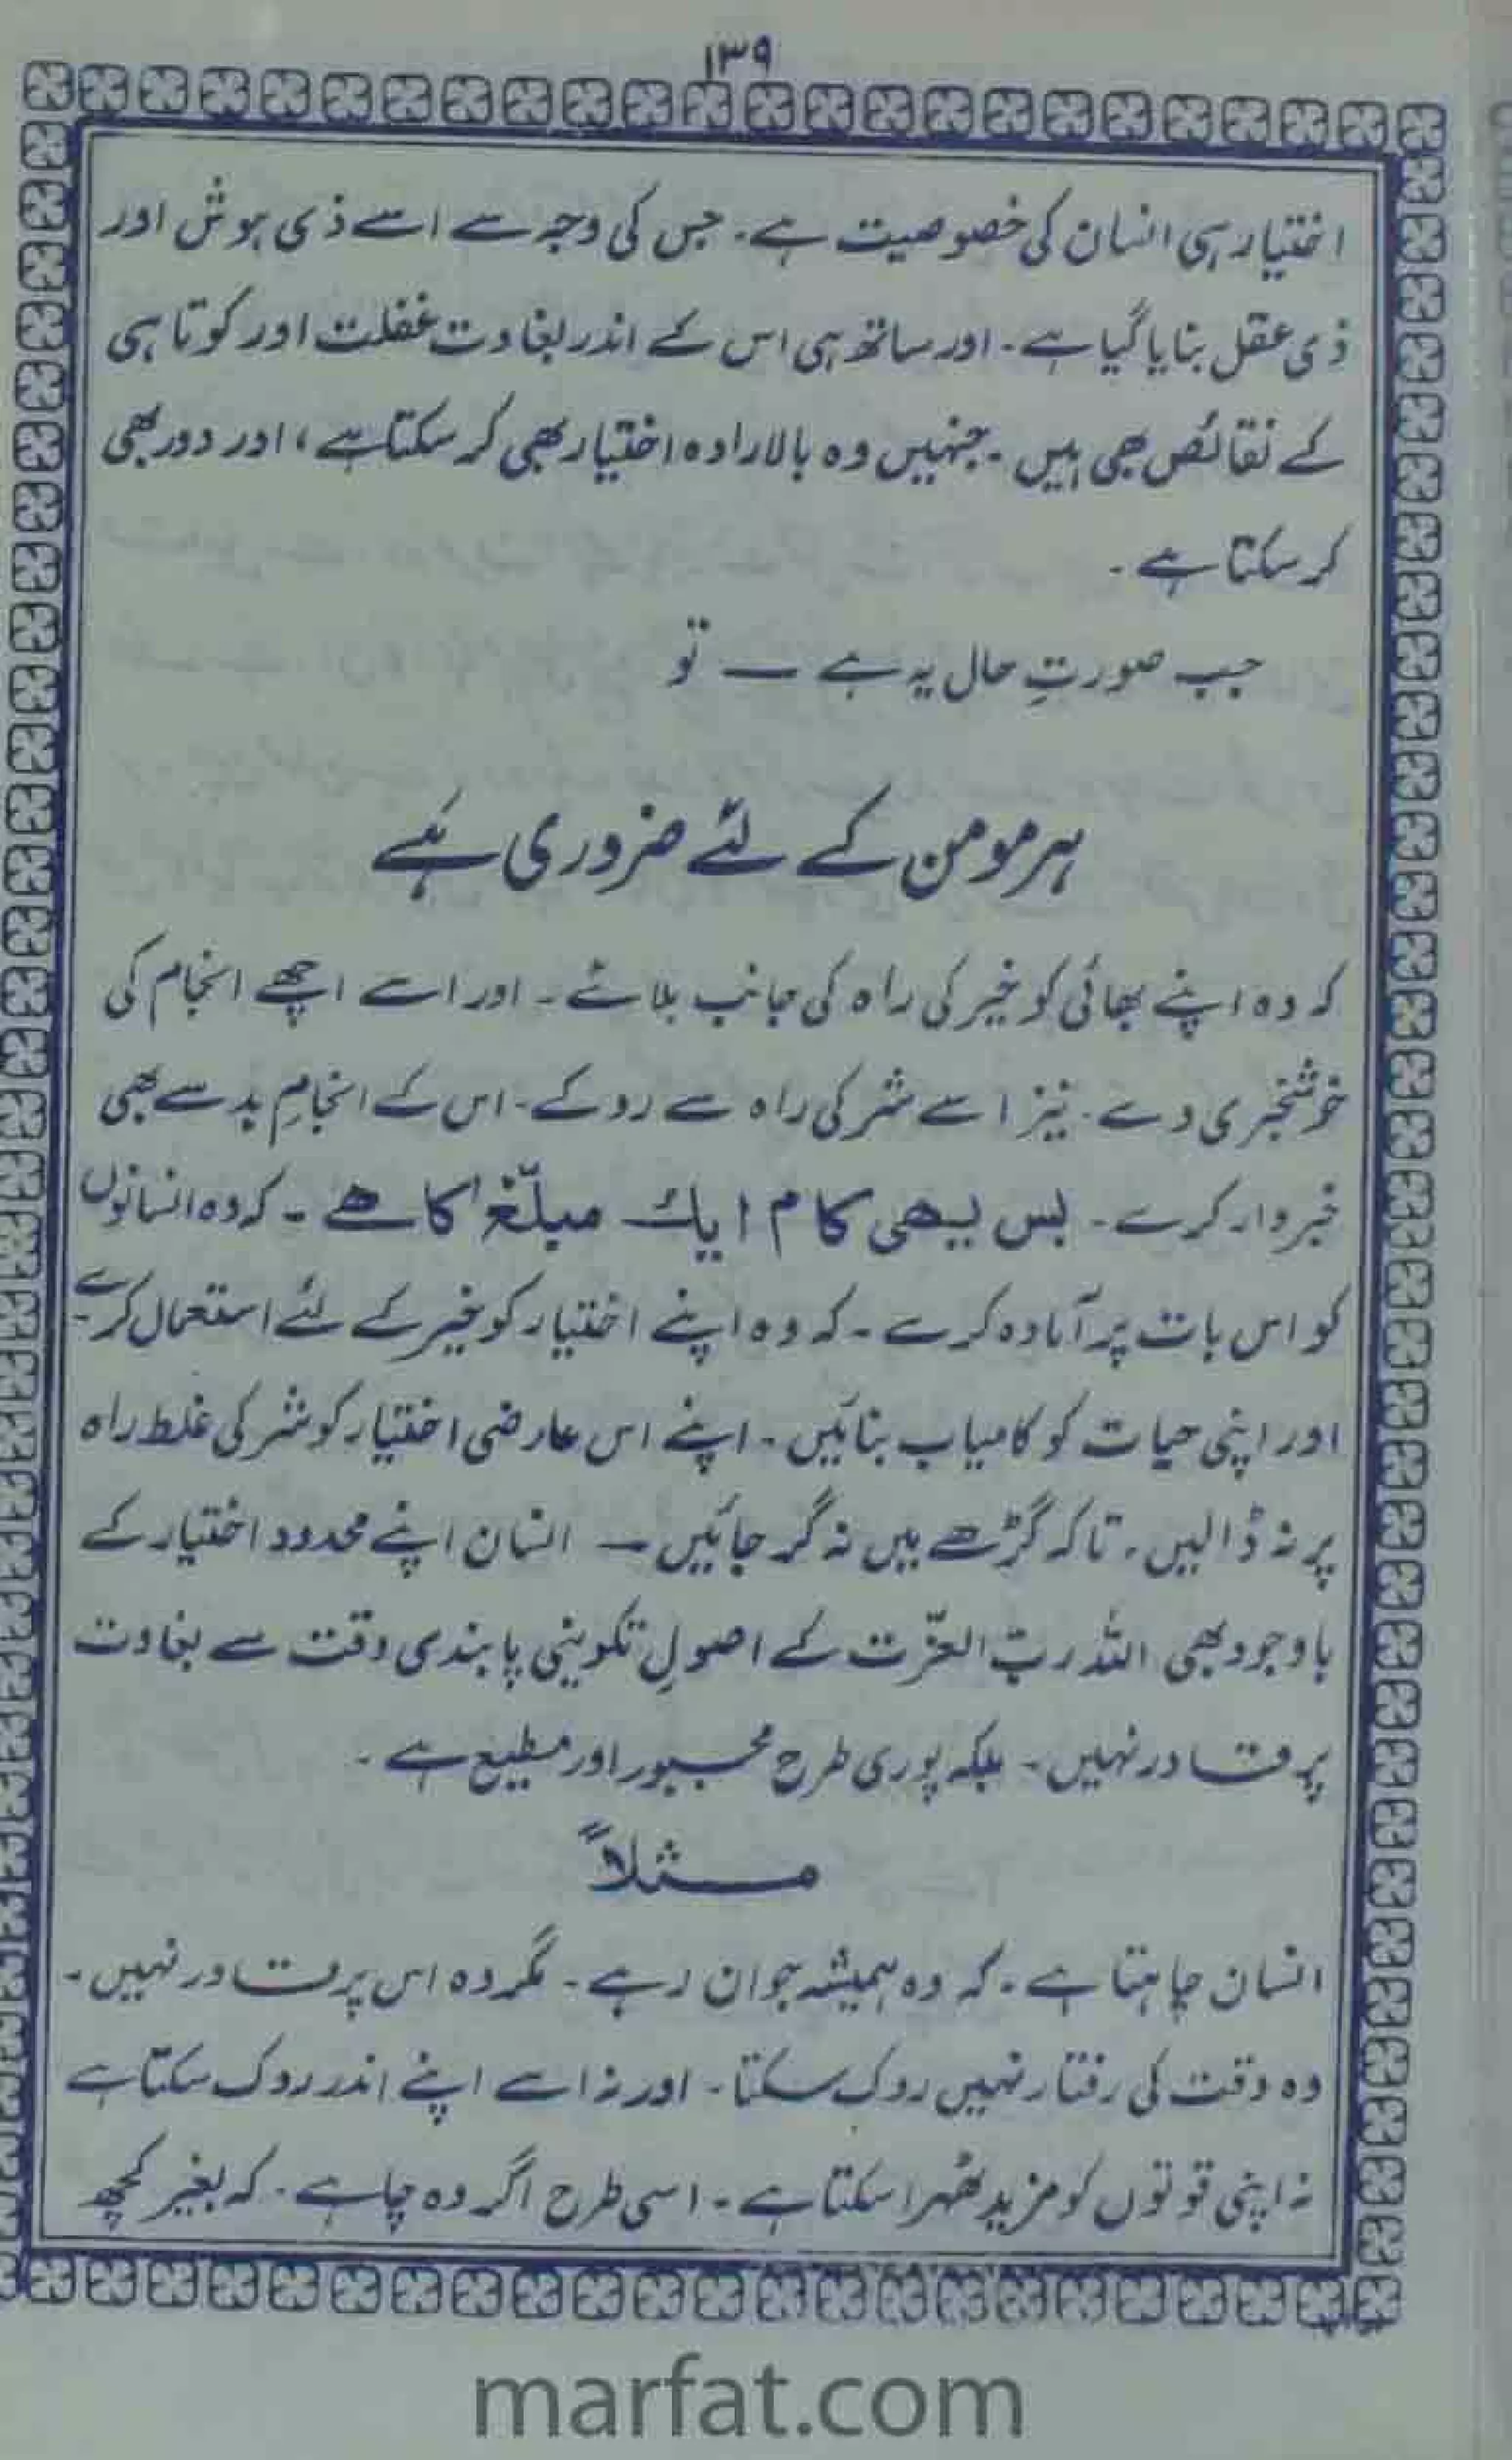 ۱۳۹
اختیار ہی انسان کی خصوصیت ہے۔ جس کی وجہ سے اسے ذی ہوش اور
ذی عقل بنایا گیا ہے۔ اور ساتھ ہی اس کے اندر بغاوت غفلت اور کوتاہی
کے نقائص بھی ہیں۔ جنہیں وہ بالارادہ اختیار بھی کر سکتا ہے، اور دور بھی
کر سکتا ہے۔
جب صورتِ حال یہ ہے — تو
ہر مومن کے لئے ضروری ہے
کہ وہ اپنے بھائی کو خیر کی راہ کی جانب بلائے۔ اور اسے اچھے انجام کی
خوشخبری دے۔ نیز اسے شر کی راہ سے روکے۔ اس کے انجامِ بد سے بھی
خبردار کرے۔ بس یہی کام ایک مبلّغ کا ہے۔ کہ وہ انسانوں
کو اس بات پر آمادہ کرے۔ کہ وہ اپنے اختیار کو خیر کے لئے استعمال کرے۔
اور اپنی حیات کو کامیاب بنائیں۔ اپنے اس عارضی اختیار کو شر کی غلط راہ
پر نہ ڈالیں۔ تاکہ گڑھے میں نہ گر جائیں — انسان اپنے محدود اختیار کے
باوجود بھی اللہ ربّ العزّت کے اصولِ تکوینی پابندی وقت سے بغاوت
پر قادر نہیں۔ بلکہ پوری طرح مجبور اور مطیع ہے۔
مثلاً
انسان چاہتا ہے۔ کہ وہ ہمیشہ جوان رہے۔ مگر وہ اس پر قادر نہیں۔
وہ وقت کی رفتار نہیں روک سکتا۔ اور نہ اسے اپنے اندر روک سکتا ہے
نہ اپنی قوتوں کو مزید ٹھہرا سکتا ہے۔ اسی طرح اگر وہ چاہے۔ کہ بغیر کچھ
marfat.com